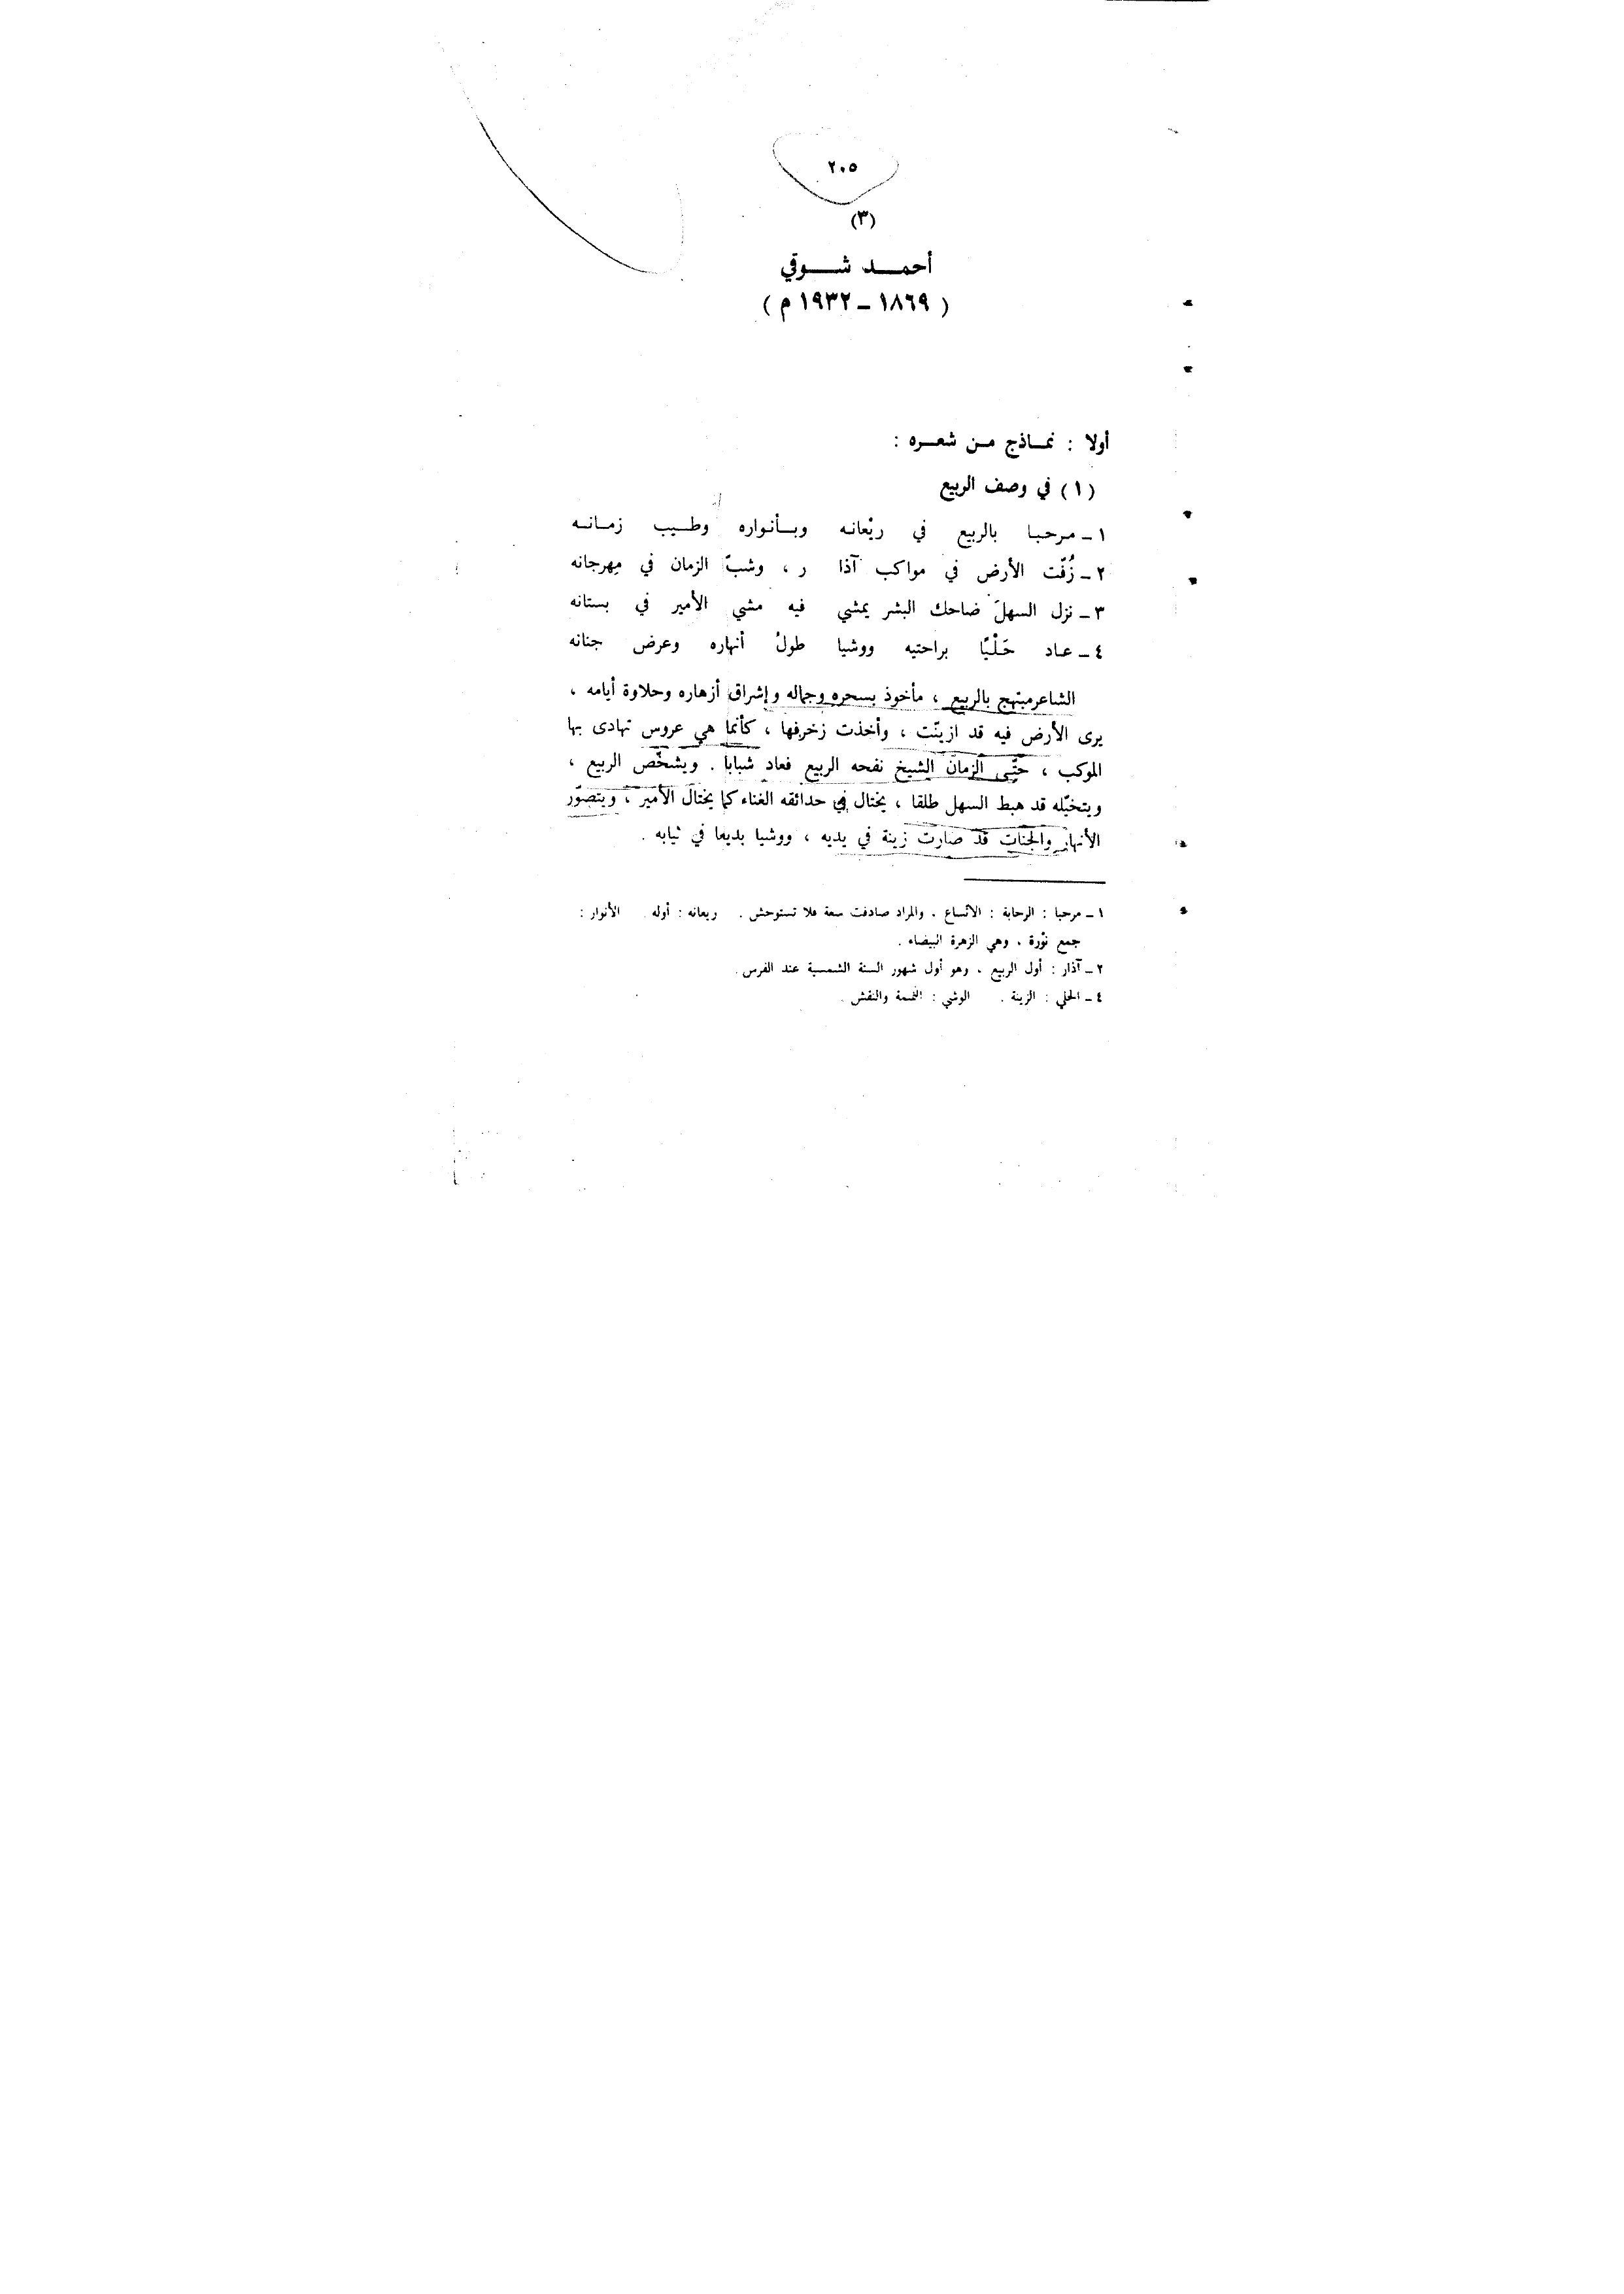 ٢٠٥
(٣)
أحمــد شــوقي
( ١٨٦٩ ـ ١٩٣٢ م )
أولا : نمــاذج مـن شعــره :
( ١ ) في وصف الربيع
١ ـ مرحبـا بالربيع في ريْعانـه وبـأنـواره وطـيب زمـانـه
٢ ـ زُفّت الأرض في مواكب آذا ر ، وشبّ الزمان في مِهرجانه
٣ ـ نزل السهلَ ضاحك البشر يمشي فيه مشي الأمير في بستانه
٤ ـ عـاد حَـلْيًا براحتيه ووشيا طولُ أنهاره وعرض جنانه
الشاعر مبتهج بالربيع ، مأخوذ بسحره وجماله وإشراق أزهاره وحلاوة أيامه ،
يرى الأرض فيه قد ازينّت ، وأخذت زخرفها ، كأنما هي عروس تهادى بها
الموكب ، حتّى الزمان الشيخ نفحه الربيع فعاد شبابا . ويشخّص الربيع ،
ويتخيّله قد هبط السهل طلقا ، يختال في حدائقه الغناء كما يختال الأمير ، ويتصوّر
الأنهار والجنات قد صارت زينة في يديه ، ووشيا بديعا في ثيابه .
١ ـ مرحبا : الرحابة : الاتّساع . والمراد صادفت سعة فلا تستوحش . ريعانه : أوله الأنوار :
جمع نوْرة ، وهي الزهرة البيضاء .
٢ ـ آذار : أول الربيع ، وهو أول شهور السنة الشمسية عند الفرس .
٤ ـ الحلي : الزينة . الوشي : النمنمة والنقش .